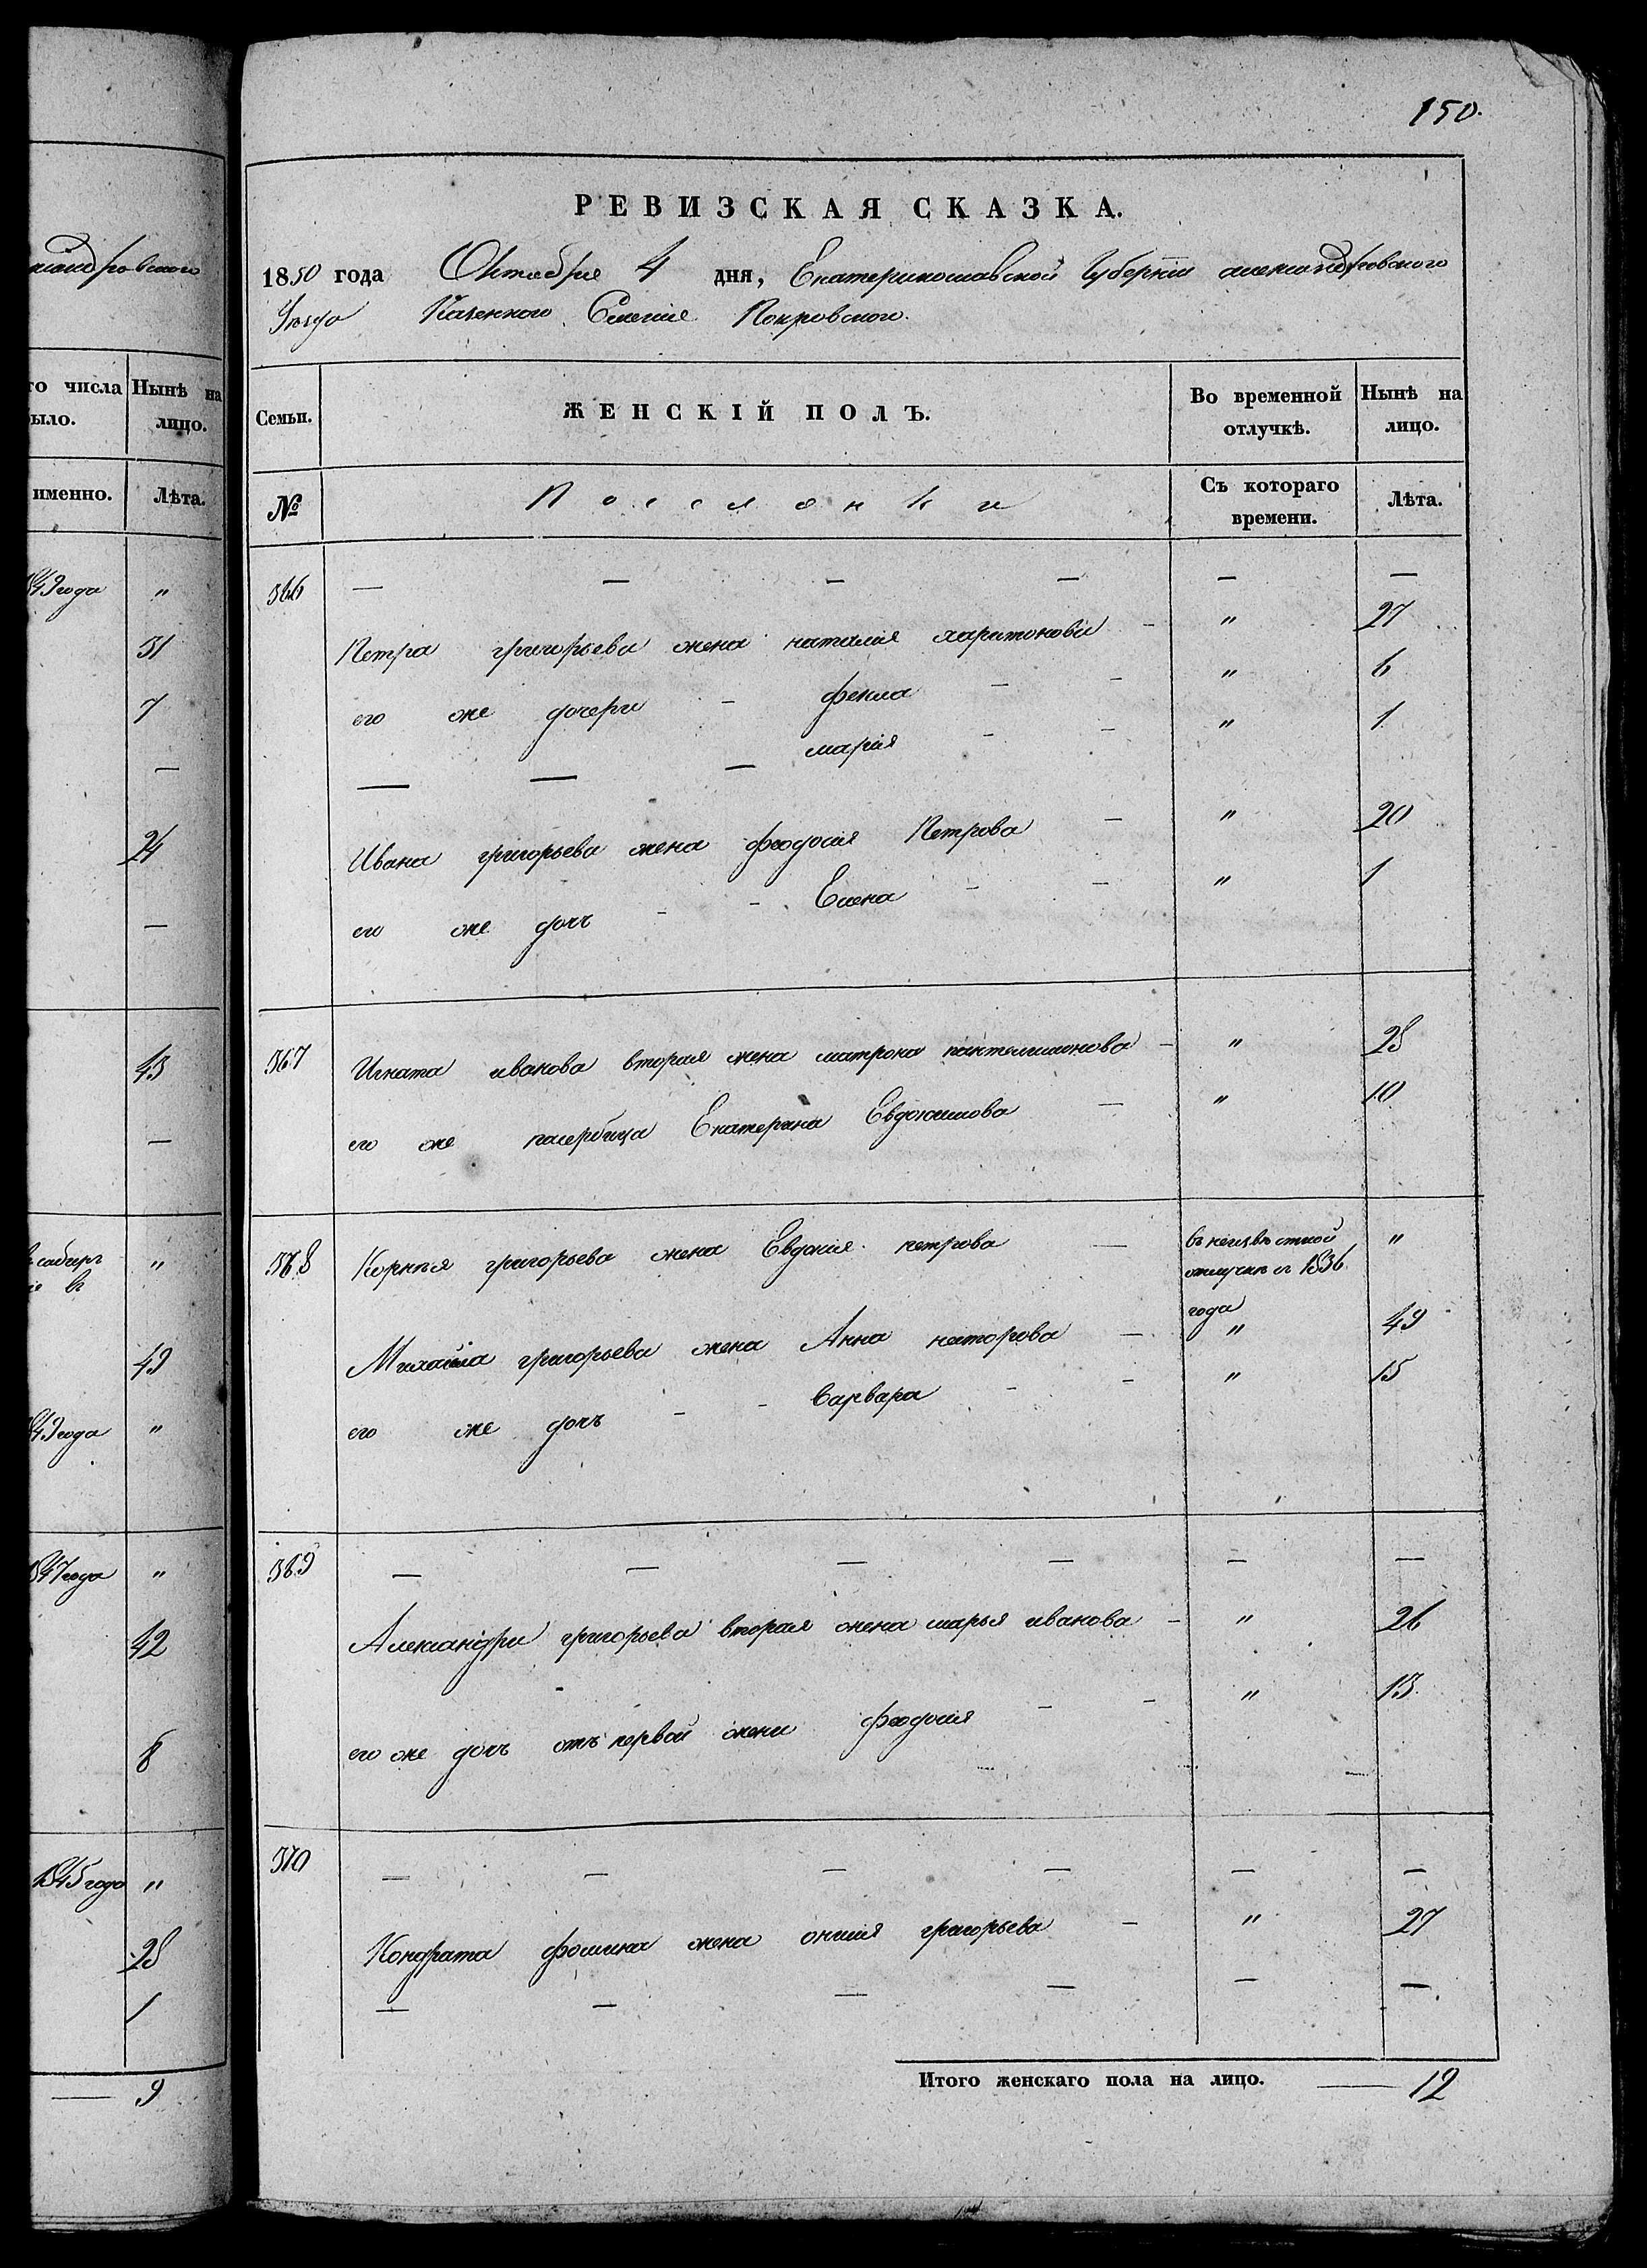 150.
РЕВИЗСКАЯ СКАЗКА.
1850 года Октября 4 дня, Екатеринославской Губерніи александровского
Уезда Казенного Селенія Покровского.
Семьи. ЖЕНСКІЙ ПОЛЪ. Во временной отлучкѣ. Нынѣ на лицо.
№ Поселянки Съ котораго времени. Лѣта.
366 — — — — — —
Петра григорьева жена наталия харитонова — " 27
его же дочери - фекла — - " 6
мария - — " 1
— — —
Ивана григорьева жена феодосия Петрова — " 20
его же дочь - - Елена - — " 1
367 Игната иванова вторая жена матрона пантелимонова — " 28
его же падчерица Екатерина Евдокимова — " 10
368 Корнѣя григорьева жена Евдокия петрова — въ неизвѣстной "
отлучке с 1836
года
Михайла григорьева жена Анна — " 49
его же дочь - - Варвара - — " 15
369 — — — — — —
Александра григорьева вторая жена марья иванова — " 26
его же дочь отъ первой жени феодосия - — " 13
370 — — — — — —
Кондрата фомина жена григорьева — " 27
— — — — — —
Итого женскаго пола на лицо. — 12
го числа Нынѣ на
ыло. лицо.
именно. Лѣта.
849 года "
31
7
—
24
—
43
—
"
49
849 года "
1847 года "
42
8
1845 года "
28
1
— 9